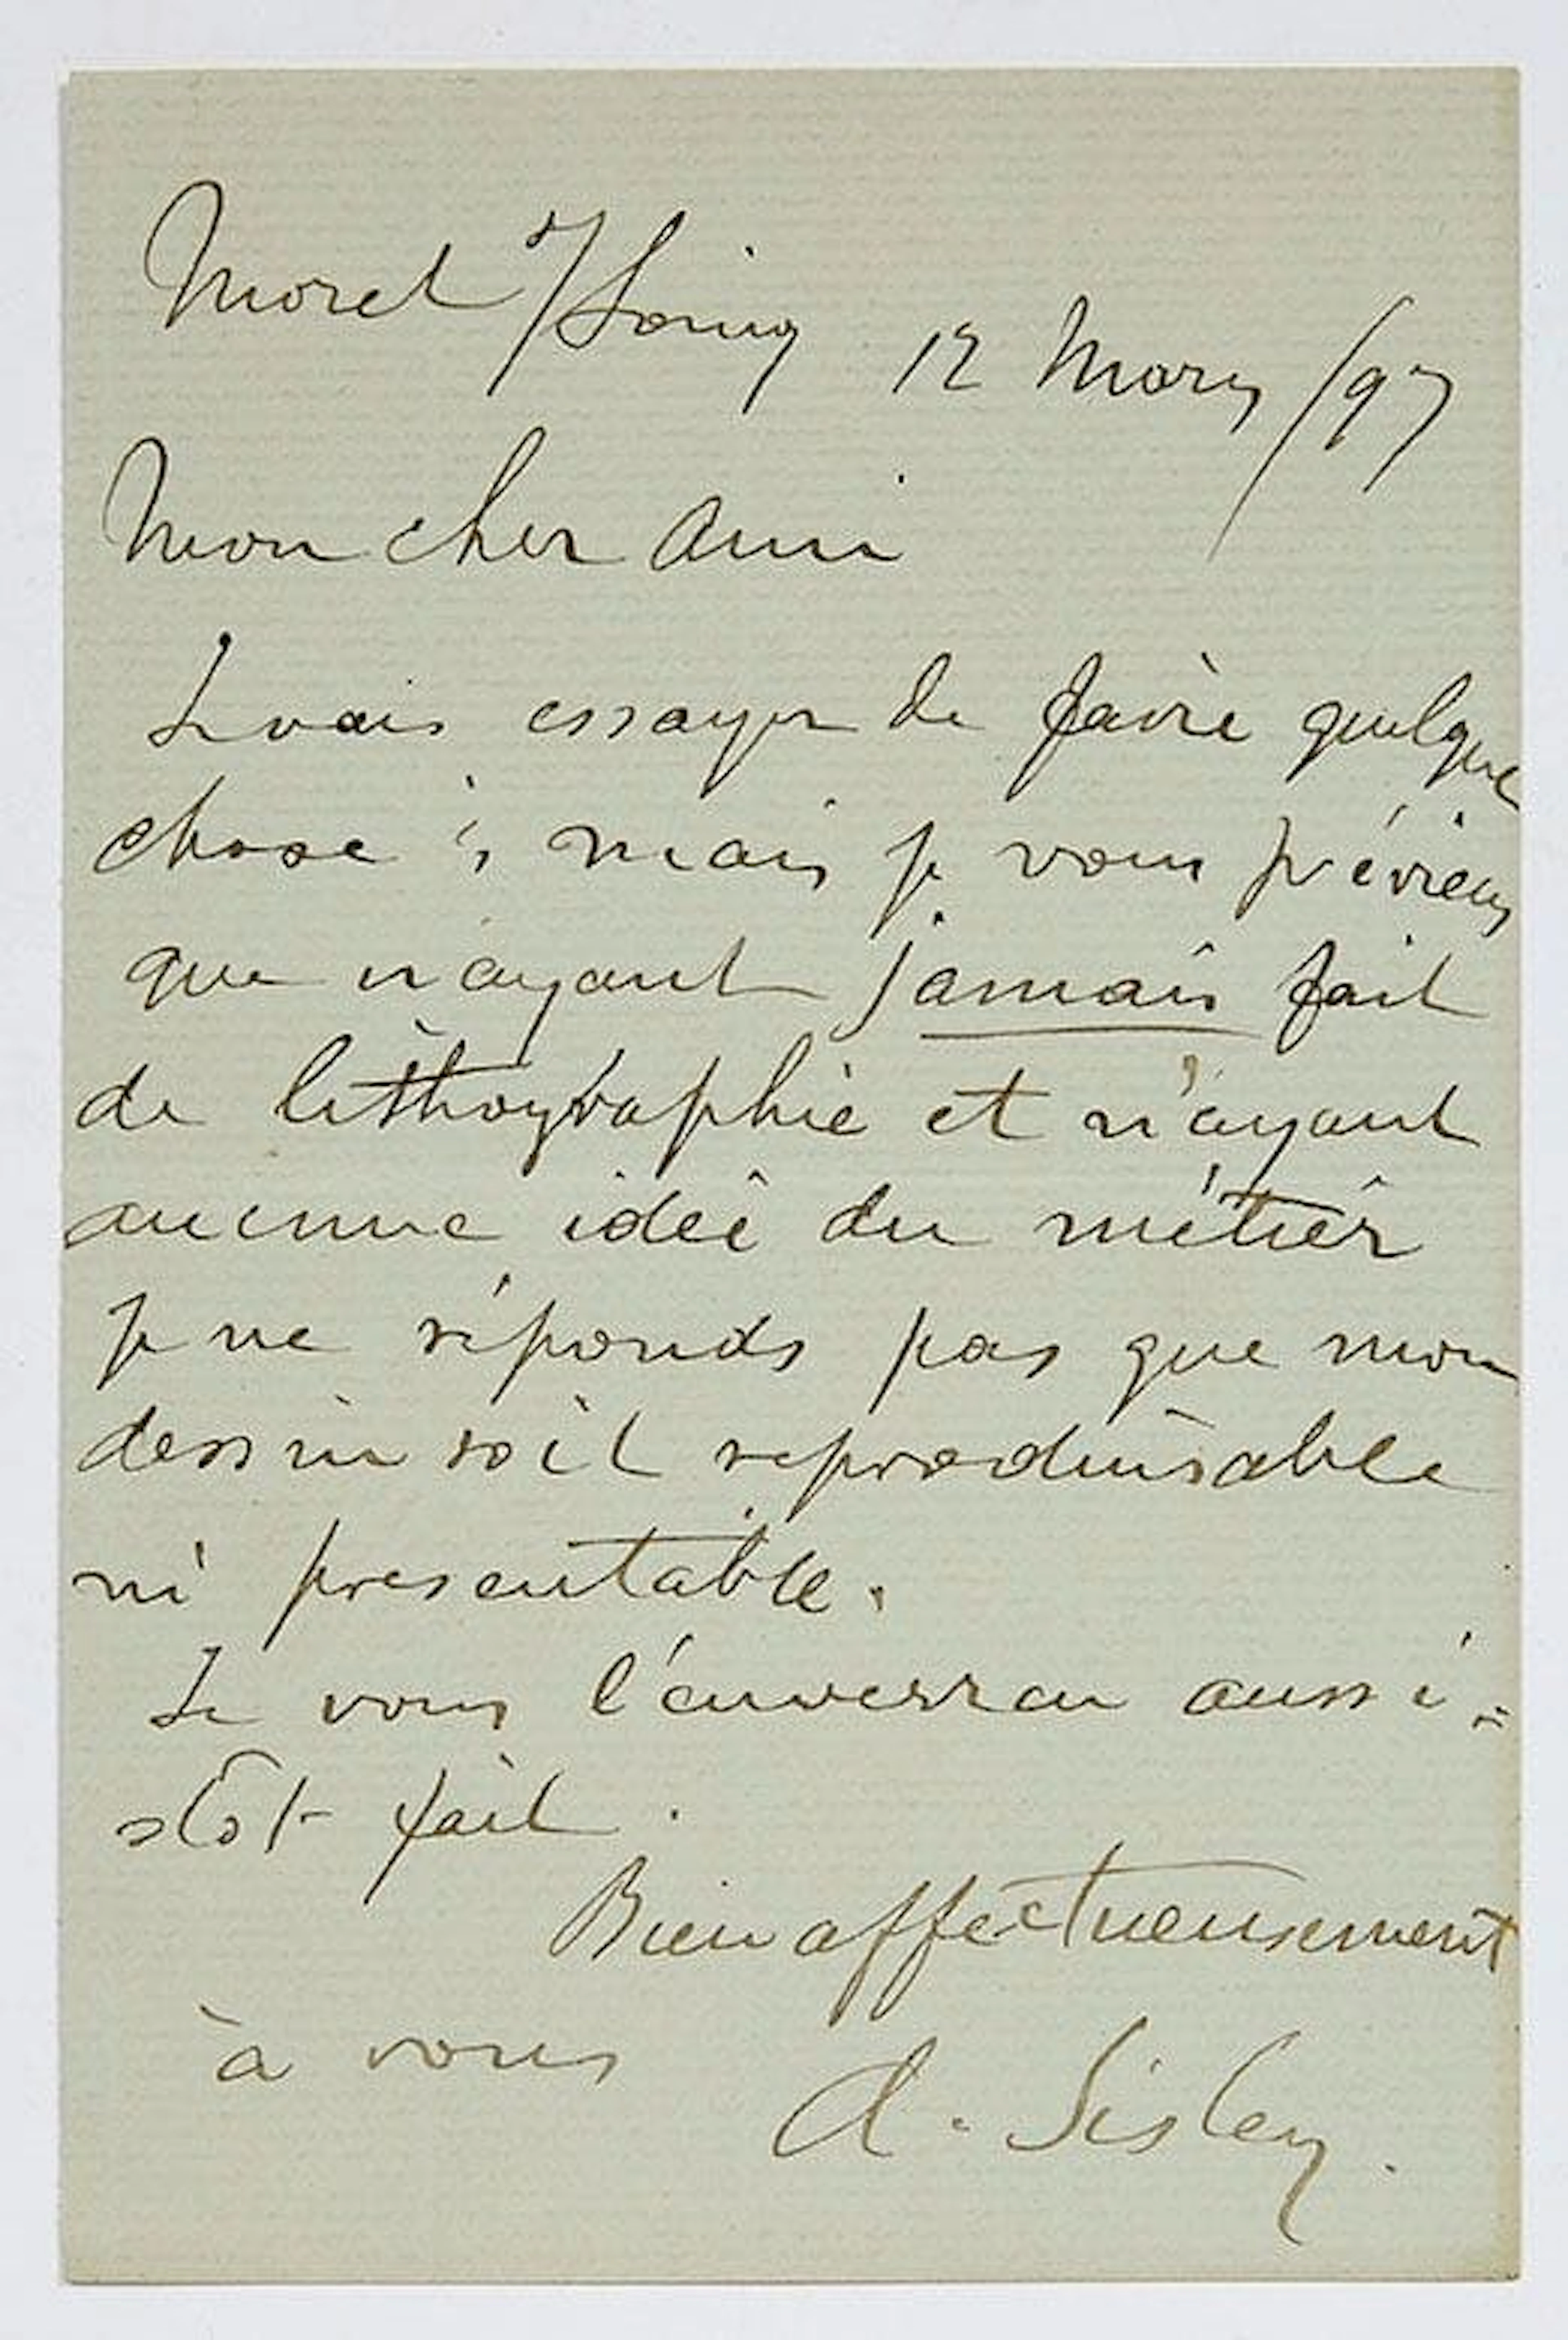 Moret s/Loing 12 Mars /97
Mon cher ami
Je vais essayer de faire quelque
chose ; mais je vous préviens
que n'ayant jamais fait
de lithographie et n'ayant
aucune idée du métier
je ne réponds pas que mon
dessin soit reproduisable
ni presentable.
Je vous l'enverrai aussi=
stôt fait.
Bien affectueusement
à vous A. Sisley.